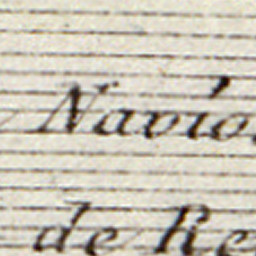 Navío
de Re